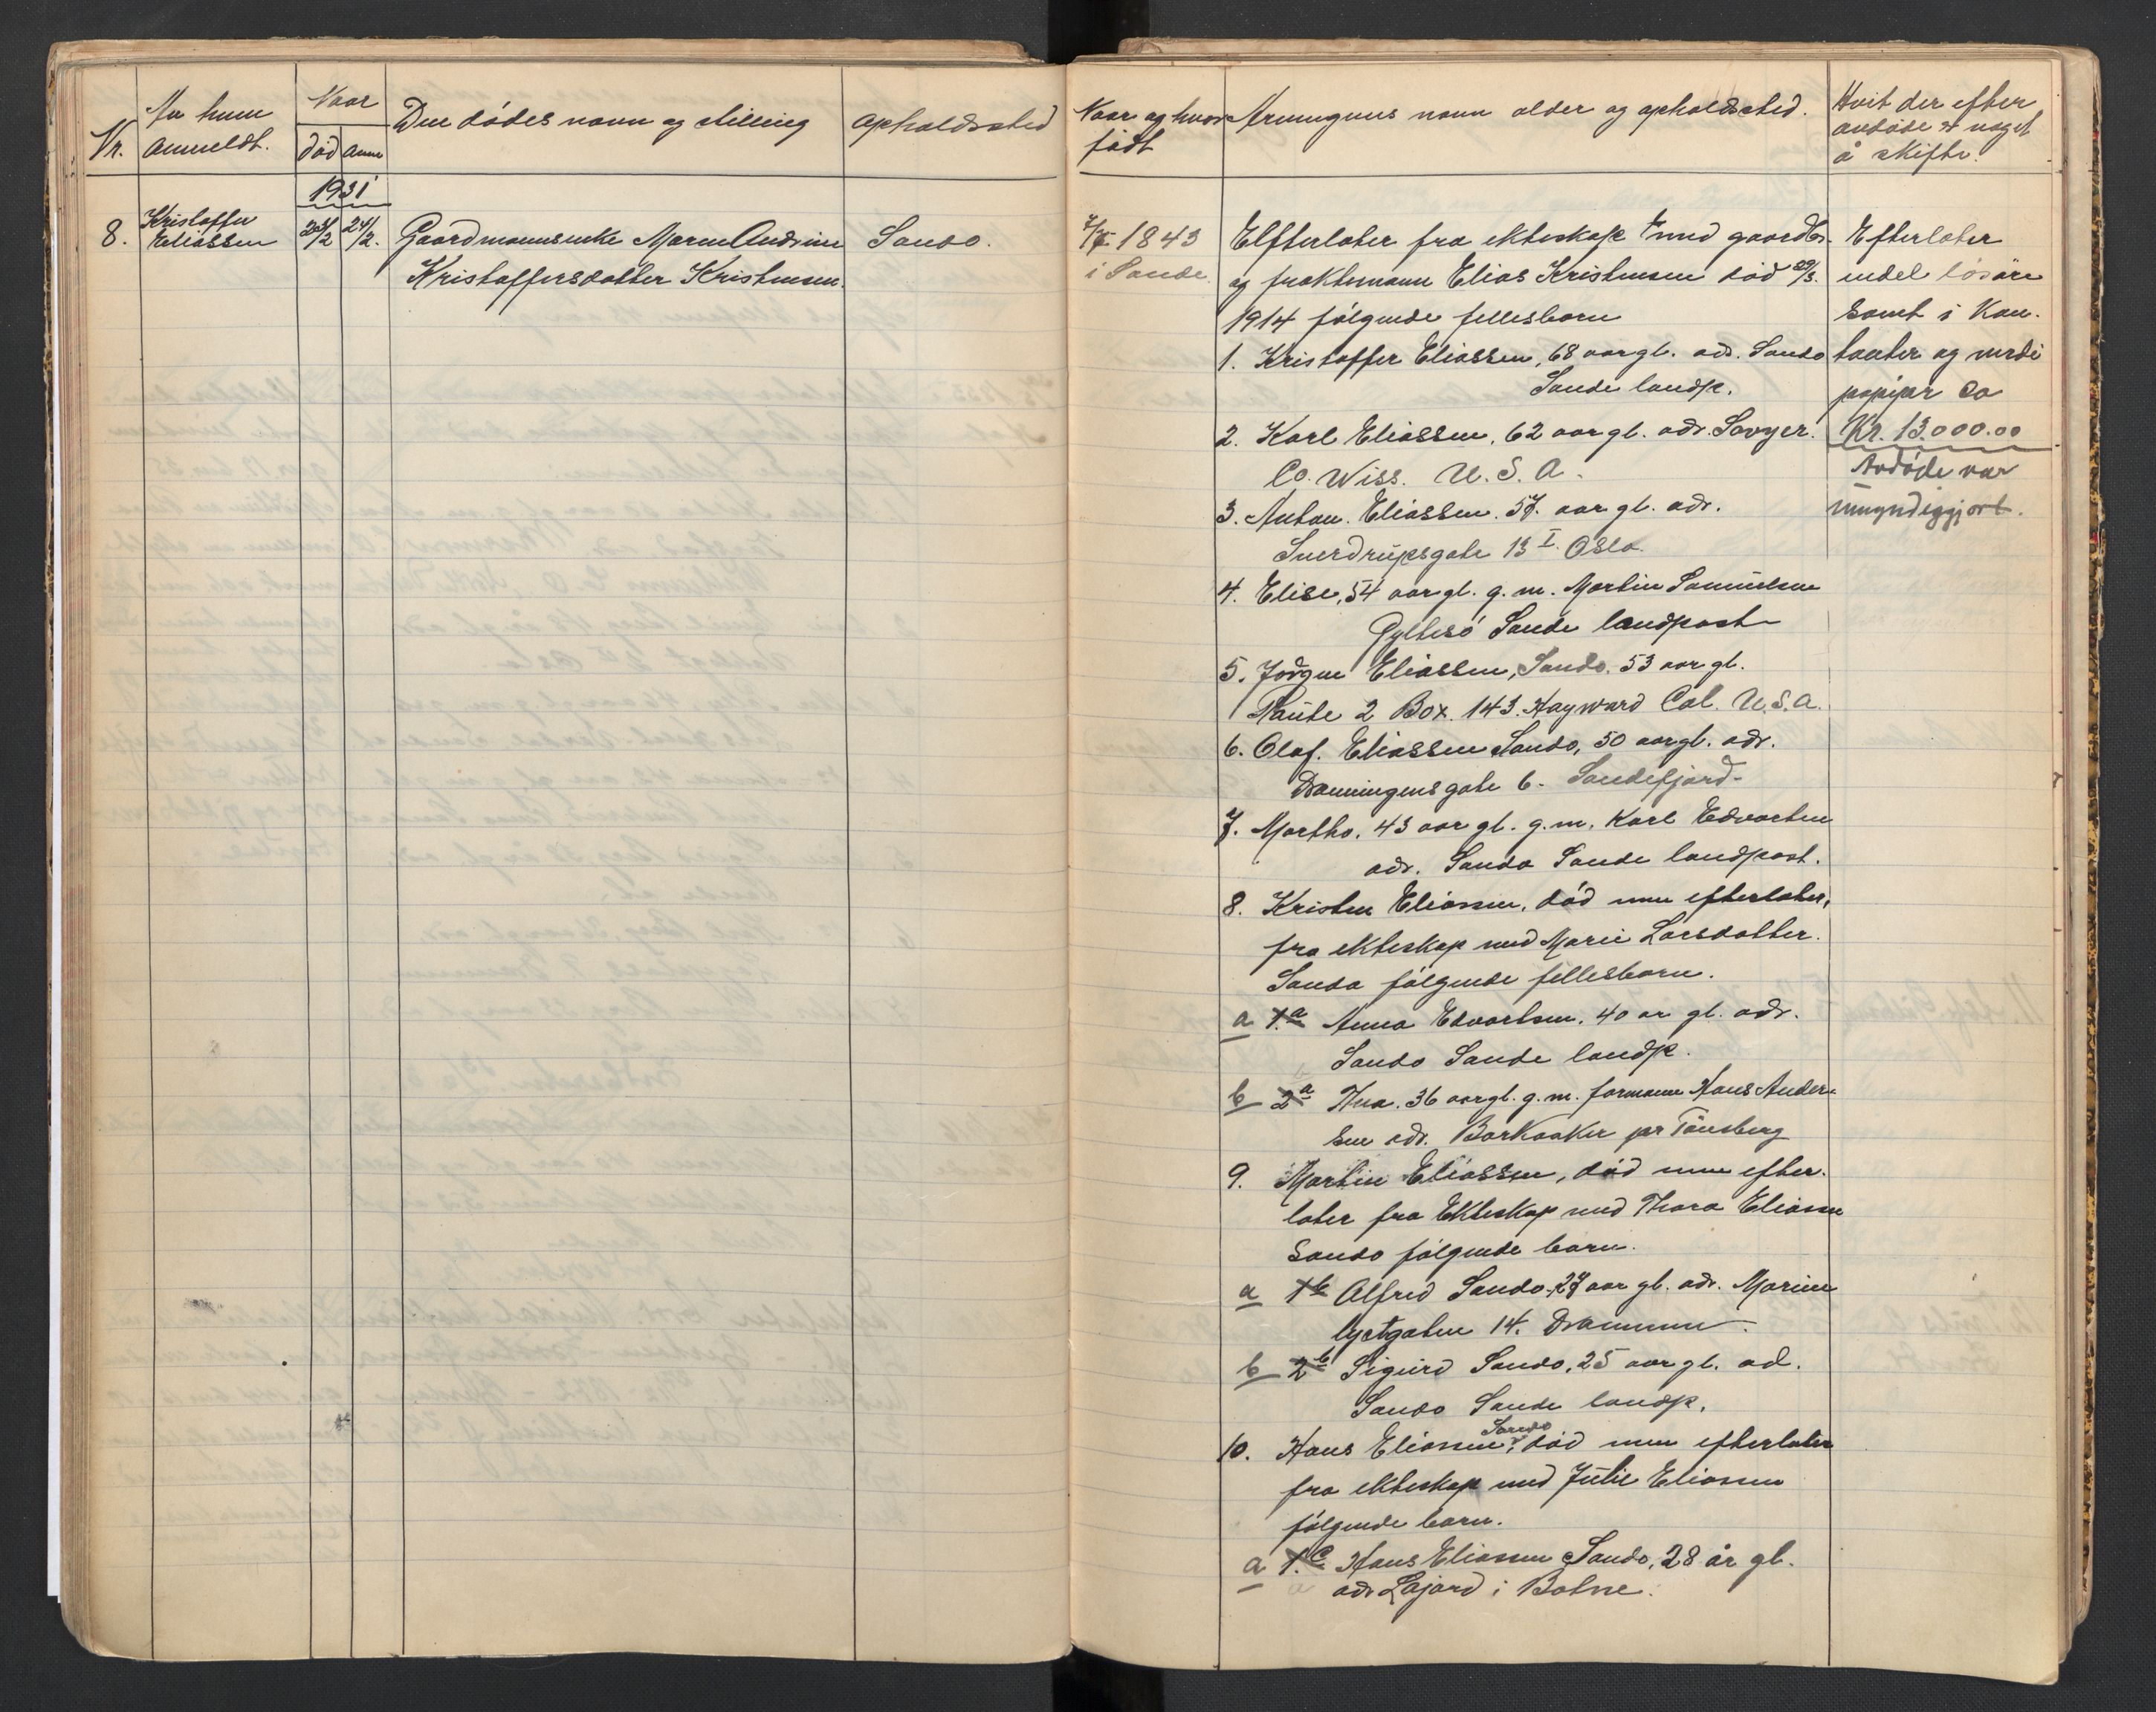 Nr.
Av hvem
anmeldt.
Naar
död
anm
Den dödes navn og stilling
opholdssted
Naar og hvor
födt
Arvingenes navn alder og opholdssted.
Hvit der efter
avdöde er noget
å skifte.
1931
8.
Kristoffer
Eliassen
23/2
24/2.
Gaardmannsenke Maren Andrine
Kristoffersdatter Kristensen.
Sando.
1843
i Sande
Elfterlater fra ekteskap med gaardbr.
og fraktemann Elias Kristensen död 29/3.
1914 fölgende fellesbarn
1. Kristoffer Eliassen, 68 aar gl. adr. Sando
Sande landp.
2. Karl Eliassen, 62 aar gl. adr. Sovyer.
Co. Wiss. U.S.A.
3. Anton. Eliassen. 57. aar gl. adr.
Sverdrupsgate 13 I. Oslo.
4. Elise, 54 aar gl. g. m. Martin Samuelsen
Gyltesö Sande landpost
5. Jörgen Eliassen, Sando. 53 aar gl.
Raute 2 Box. 143. Hayward Cal. U.S.A.
6. Olaf. Eliassen Sando, 50 aar gl. adr.
Dronningensgate 6. Sandefjord.
7. Martha. 43 aar gl. g. m. Karl Edvartsen
adr. Sando Sande landpost.
8. Kristen Eliassen, död men efterlater,
fra ekteskap med Marie Larsdatter.
Sando fölgende fellesbarn.
a 1.a Anna Edvartsen. 40 ar gl. adr.
Sando Sande landp.
b 2a Thea. 36 aar gl. g. m. formann Hans Ander-
sen adr. Barkaaker pr Tönsberg
9. Martin Eliassen, död men efter.
later fra Ekteskap med Thora Eliassen
Sando fölgende barn.
a 1b Alfred Sando, 27 aar gl. adr. Marien
lystgaten 14. Drammen.
b 2b Sigurd Sando, 25 aar gl. ad.
Sando Sande landp.
Sando
10. Hans Eliassen, död men efterlater
fra ekteskap med Julie Eliassen
fölgende barn.
a 1.c Hans Eliassen Sando, 28 år gl.
adr Lajord i Botne.
Efterlater
endel lösöre
samt i Kon.
tanter og verdi
papiper ca
Kr. 13.000.00
Avdöde var
umyndiggjort.